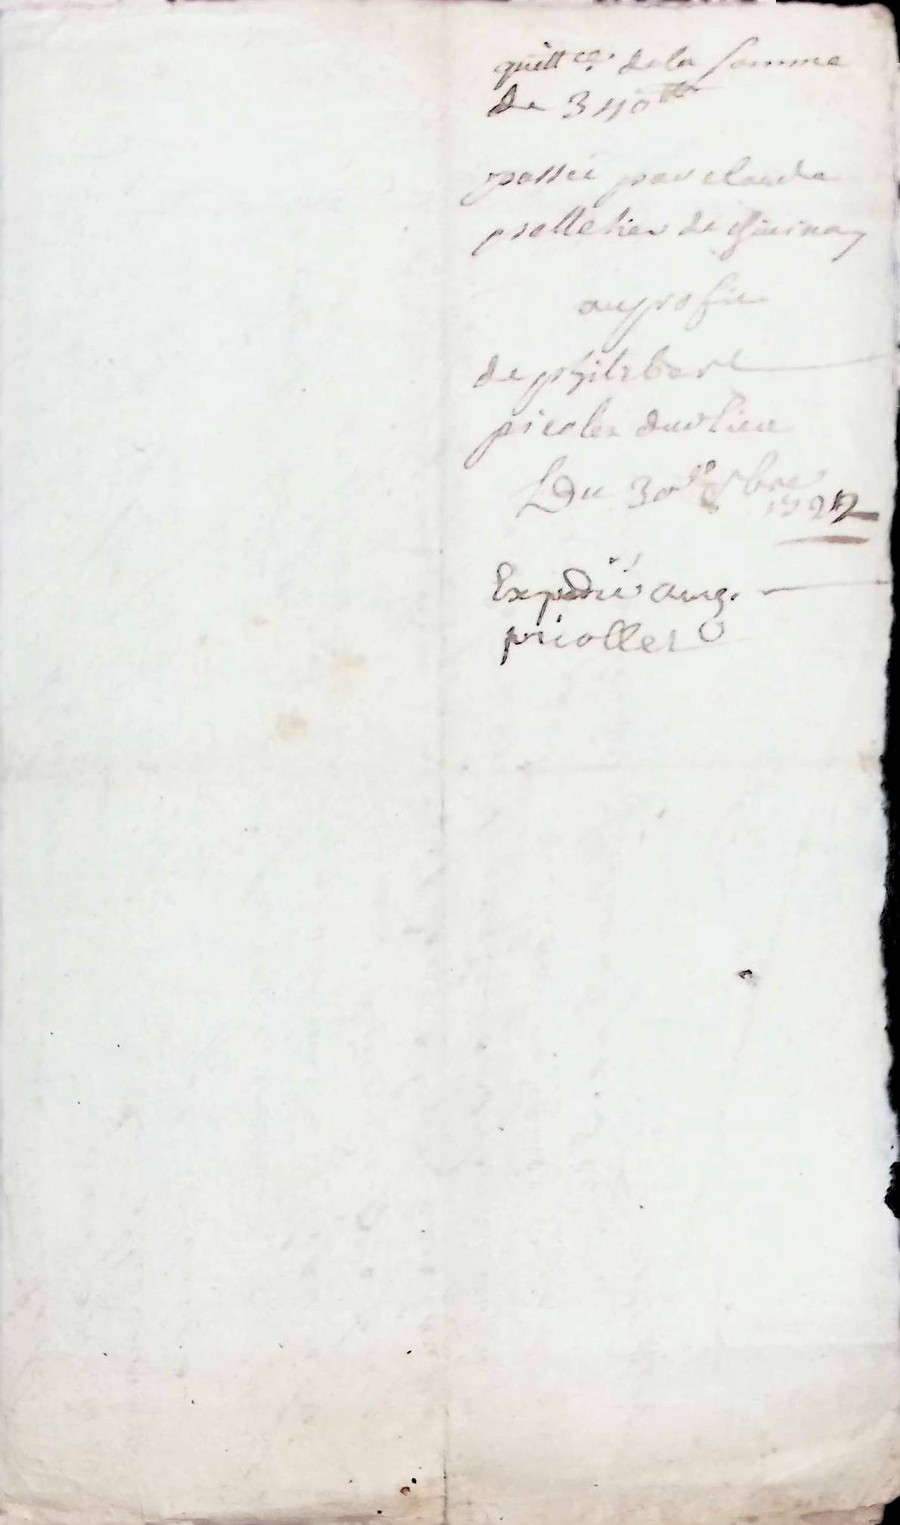 quitt.ce de la somme
de 3110 tt
passée par claude
pelletier de
au profit
de philibert
picolet dud lieu
Du 30e 8bre
expedié aud.
picollet